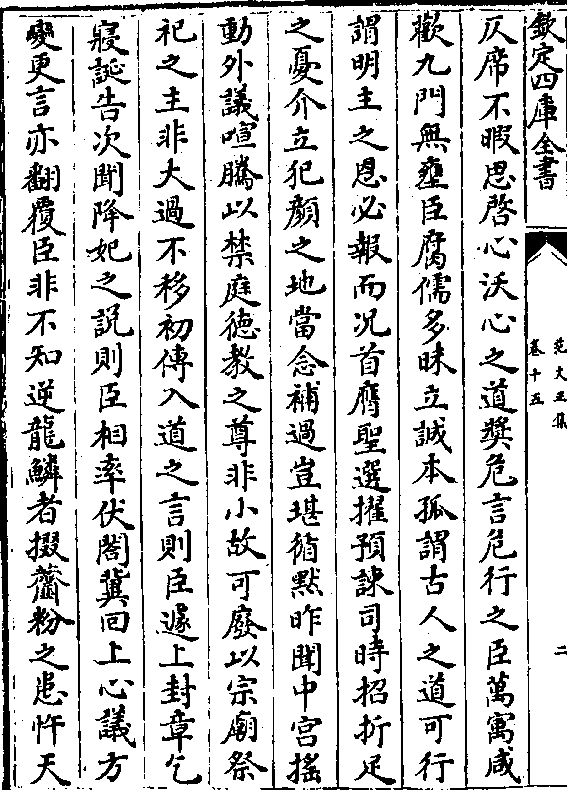 欽定四庫全書
范文正集
卷十五
二
仄席不暇思啓心沃心之道奬危言危行之臣萬寓咸
歡九門無壅臣腐儒多昧立誠本孤謂古人之道可行
謂明主之恩必報而况首膺聖選擢預諫司時招折足
之憂介立犯顔之地當念補過豈堪循黙昨聞中宫搖
動外議喧騰以禁庭徳教之尊非小故可廢以宗廟祭
祀之主非大過不移初傳入道之言則臣遽上封章乞
寢誕告次聞降妃之説則臣相率伏閤冀回上心議方
變更言亦翻覆臣非不知逆龍鱗者掇虀粉之患忤天